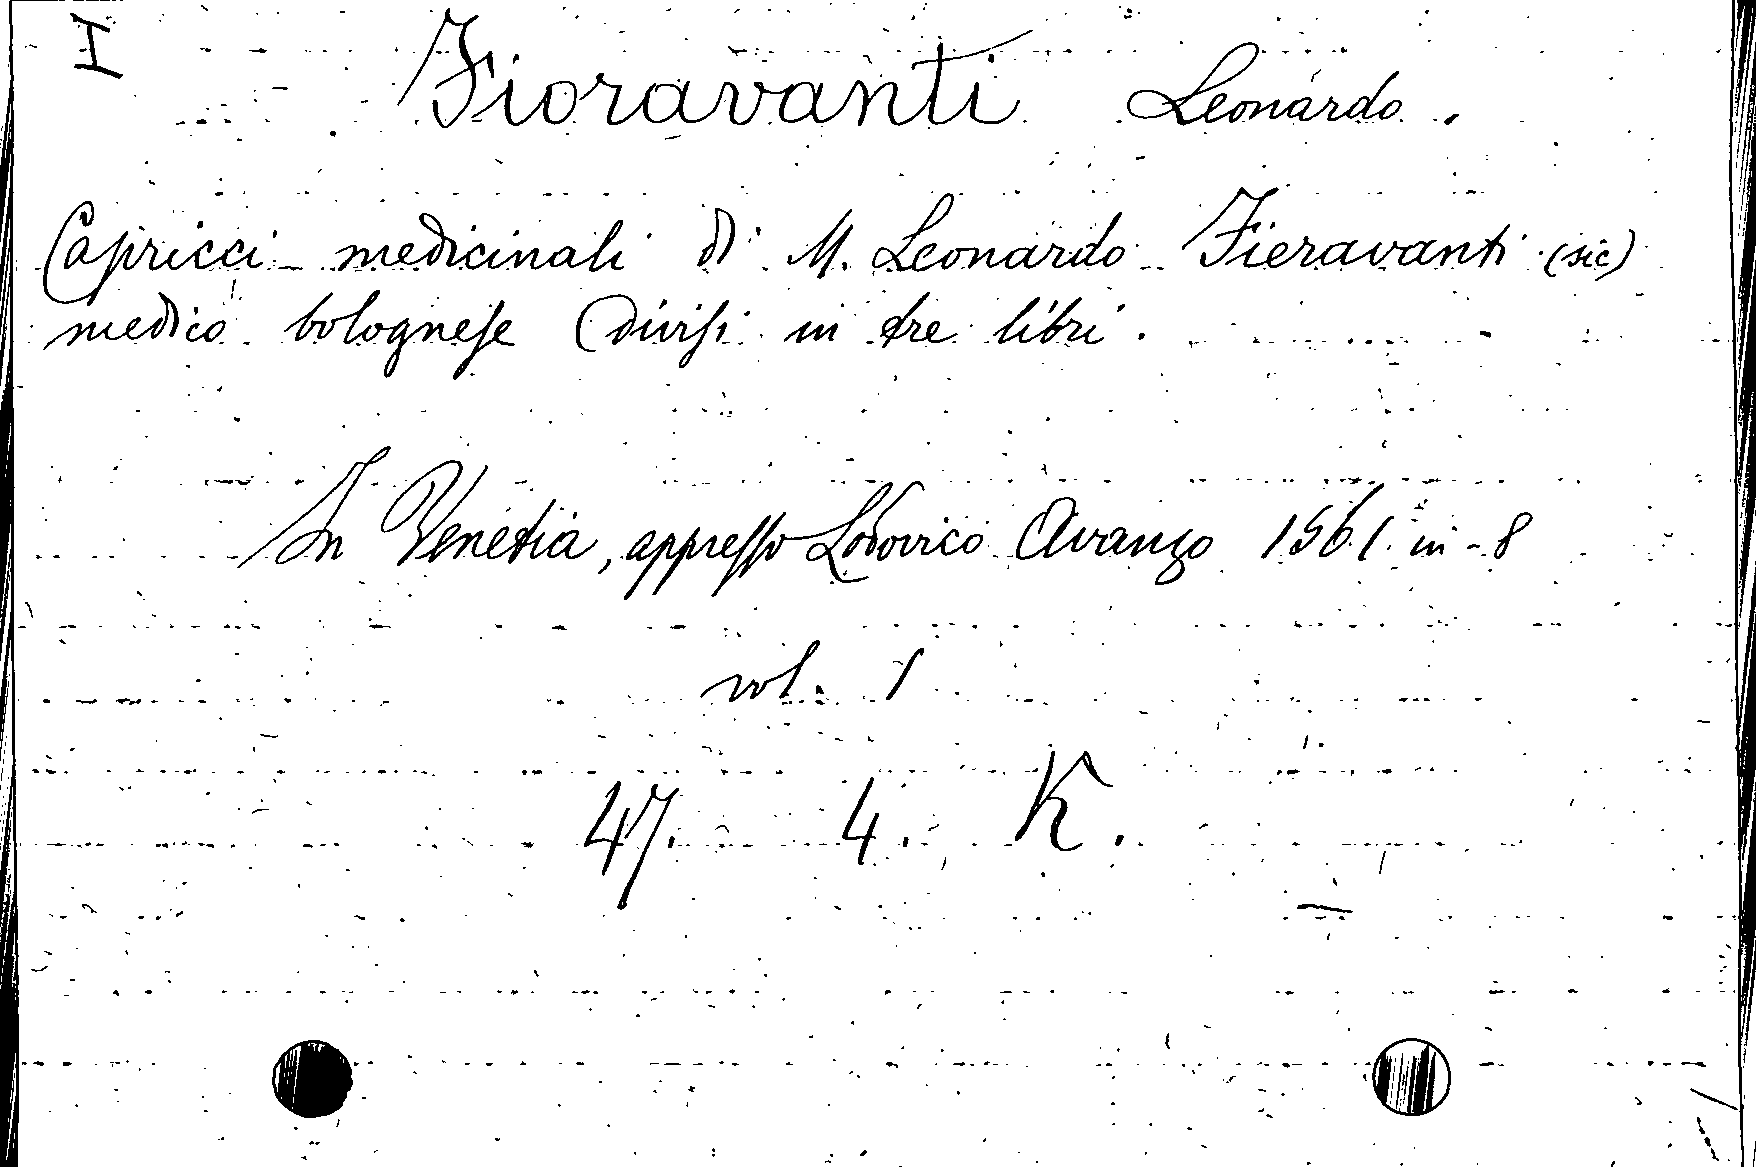 I
Fioravanti Leonardo.
Capricci medicinali di M. Leonardo Fieravanti (sic)
medico bolognese Divisi in tre libri.
In Venetia, appresso Lodovico Avanzo 1561 in-8
vol. 1
47. 4. K.